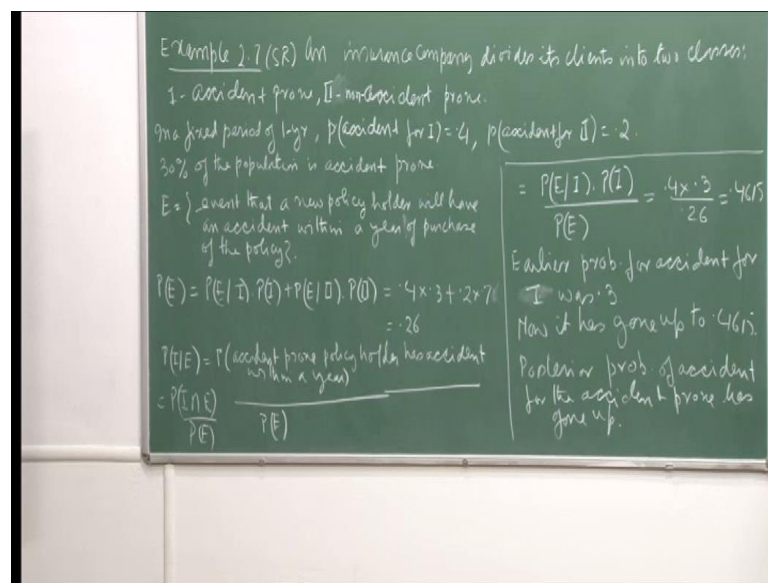 Example 2.7 (SR) An insurance Company divides its clients into two classes:
I - accident prone, II - non-accident prone.
In a fixed period of 1-yr, P(accident for I) = .4, P(accident for II) = .2.
30% of the population is accident prone.
E = { event that a new policy holder will have
an accident within a year of purchase
of the policy}.
P(E) = P(E/I). P(I) + P(E/II). P(II) = .4x.3 + .2x.7
= .26
P(I/E) = P(accident prone policy holder has accident
within a year)
= P(I∩E)
P(E)
P(E)
= P(E/I). P(I) / P(E) = .4x.3 / .26 = .4615
Earlier prob. for accident for
I was .3
Now it has gone up to .4615.
Posterior prob. of accident
for the accident prone has
gone up.